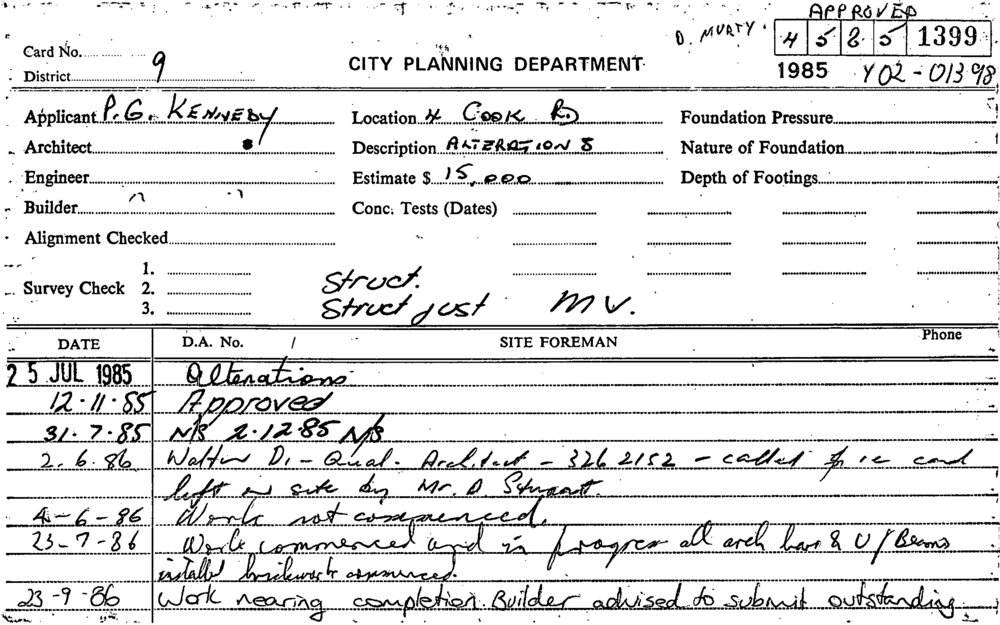 APPROVED
D. MURTY.
4 5 8 5 1399
Card No.
District 9
CITY PLANNING DEPARTMENT
1985 Y02-01398
Applicant P.G. KENNEDY Location 4 COOK RD Foundation Pressure
Architect Description ALTERATIONS Nature of Foundation
Engineer Estimate $ 15,000 Depth of Footings
Builder " " Conc. Tests (Dates)
Alignment Checked
Survey Check 1.
2.
3.
Struct.
Struct just MV.
DATE D.A. No. / SITE FOREMAN Phone
25 JUL 1985 Alterations
12.11.85 Approved
31.7.85 N/S 2.12.85 N/S
2.6.86 Di - Qual. Architect - 326 2152 - called card
left on site by Mr. D
4-6-86 Work not commenced.
23-7-86 Work commenced and in progress all arch bars & U/Beams
installed brickwork commenced.
23-9-86 Work nearing completion. Builder advised to submit outstanding